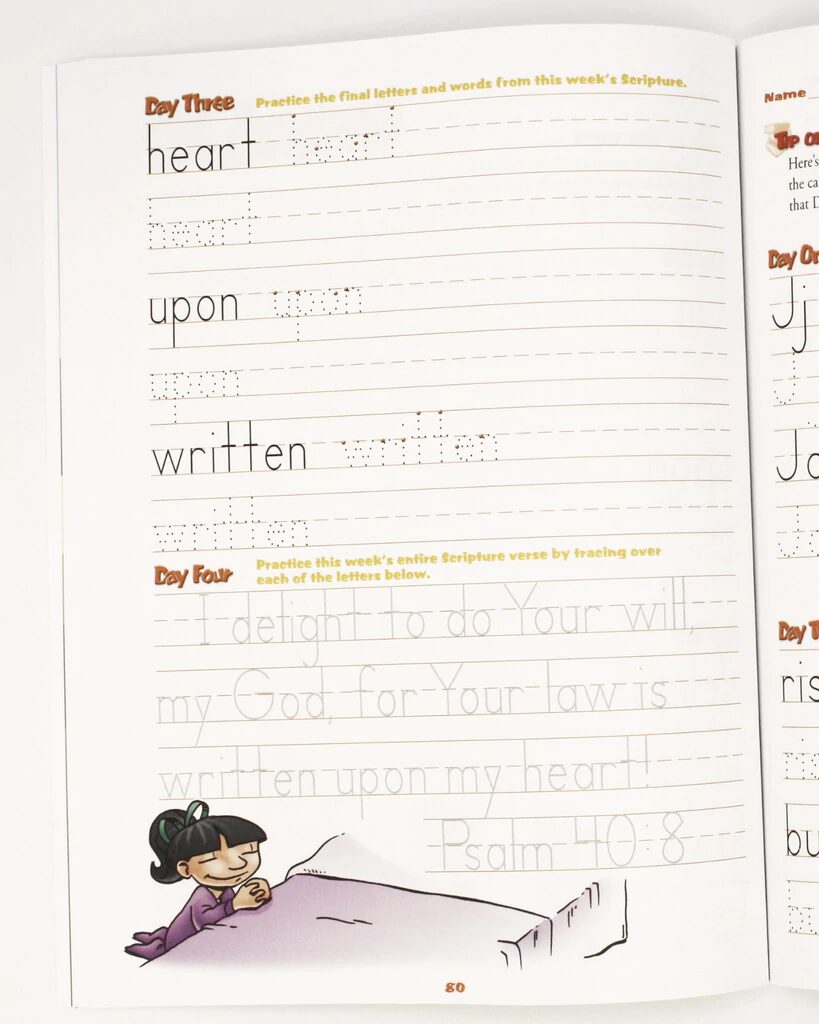 Day Three Practice the final letters and words from this week's Scripture.
heart heart
heart
upon upon
upon
written written
written
Day Four Practice this week's entire Scripture verse by tracing over
each of the letters below.
I delight to do Your will,
my God, for Your law is
written upon my heart!
Psalm 40:8
80
Name
Here's
that
Jj
J